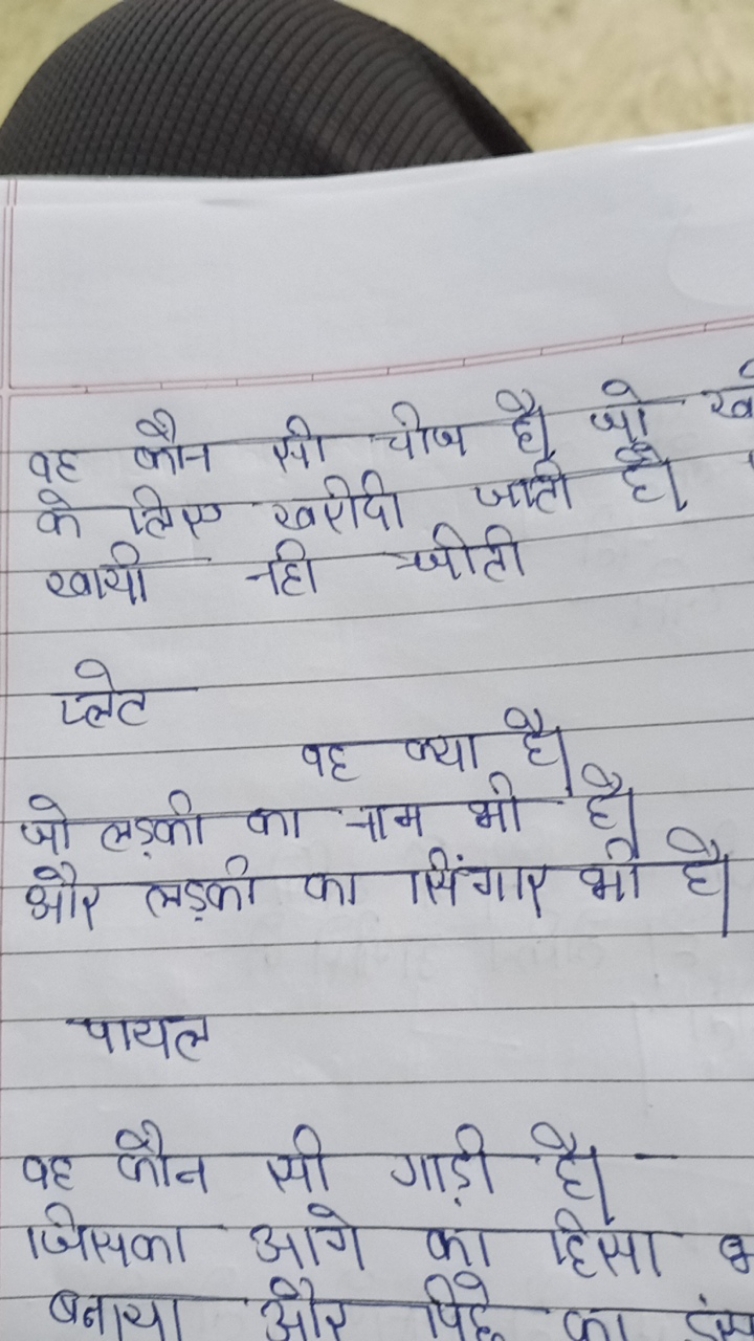 वह कौन सी चीज है। जो
के लिए खरीदी जाती है।
खायी नही जाती
प्लेट
वह क्या है।
जो लड़की का नाम भी है।
और लड़की का सिंगार भी है।
पायल
वह कौन सी गाड़ी है।
जिसका आगे का हिसा
बनाया और पिछे का